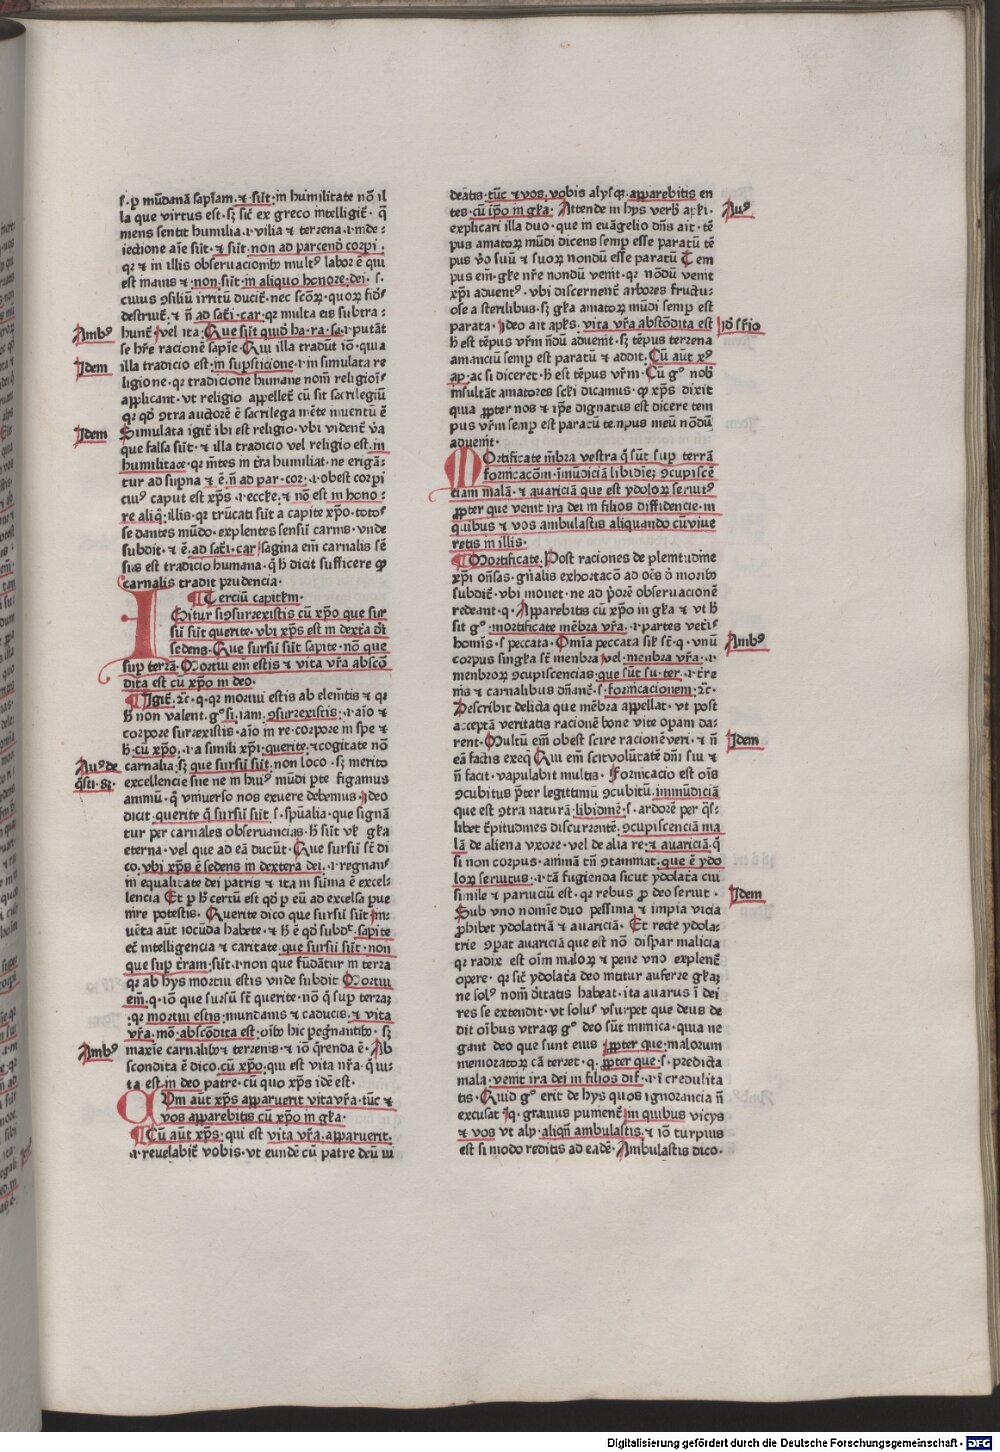 s·p mūdanā sapīam·⁊ sūt·in humilitate nō il
la que virtus est·sꝫ sic̄ ex greco intelligit̄·q̄
mens sentit humilia·i·vilia ⁊ terrena·i·in de⸗
iectione aīe sūt·⁊ sūt·non ad parcēdō corpi·
qr ⁊ in illis obseruacionibꝰ multꝰ labor ē qui
est inanis ⁊·non·sūt·in aliquo honore·dei·s·
cuius ꝯsiliū irritū ducūt·nec scōꝝ·quoꝝ fidē
destruūt·⁊ n̄ ad sati·car·qr multa eis subtra⸗
Ambꝰ
hunt̄·vel ita·Que sūt quid̄ ha·ra·sa·i·putāt
se hr̄e racionē sapīe·Qui illa tradūt iō·quia
Idem
illa tradicio est·in supsticione·i·in simulata re
ligione·qr tradicione humane nom̄ religiōis
applicant·vt religio appelleť cū sit sacrilegiū
qr qd̄ ꝯtra auctorē ē sacrilega mēte inuentū ē
Idem
Simulata igiť ibi est religio·vbi videnť v̄a
que falsa sūt·⁊ illa tradicio vel religio est·in
humilitate·qr mētes in t̄ra humiliat·ne erigā⸗
tur ad supna ⁊ ē·n̄ ad par·cor·i·obest corpi
ciuꝰ caput est xp̄s·i·eccl̄e·⁊ nō est in hono⸗
re aliq̄·illis·qr trūcati sūt a capite xp̄o·totos
se dantes mūdo·explentes sensū carnis·vnde
subdit·⁊ ē·ad sati·car sagina em̄ carnalis sē
sus est tradicio humana·q̄ h̄ dicit sufficere qd
carnalis tradit prudencia·
¶ Terciū capitlm·
Igitur si ꝯsurrexistis cū xp̄o que sur
sū sūt querite·vbi xp̄s est in dextera dei
sedens·Que sursū sūt sapite·nō que
sup terrā·Mortui em̄ estis ⁊ vita vr̄a abscō
dita est cū xp̄o in deo·
¶ Igiť·⁊c·q·qr mortui estis ab elem̄tis ⁊ qr
h̄ non valent·gͦ si·iam·ꝯsurrexistis·i·aīo ⁊
corpore surrexistis·aīo in re·corpore in spe ⁊
h̄·cū xp̄o·i·a simili xp̄i·querite·⁊ cogitate nō
Auꝰ de
carnalia·sꝫ que sursū sūt·non loco·sꝫ merito
q̄sti·83·
excellencie sue ne in huiꝰ mūdi pte figamus
animū·q̄ vniuerso nos exuere debemus·Ideo
dicit·querite q̄ sursū sūt·s·spualia·que signā
tur per carnales obseruancias·h̄ sūt vl̄ gl̄a
eterna·vel que ad eā ducūt·Que sursū sūt di
co·vbi xp̄s ē sedens in dextera dei·i·regnans
in equalitate dei patris ⁊ ita in sūma ē excel⸗
lencia Et p h̄ certū est qd̄ p eū ad excelsa pue
nire potestis·Querite dico que sursū sūt·in⸗
uēta aūt iocuda habete·⁊ h̄ ē qd̄ subdͭ·sapite
eť intelligencia ⁊ caritate·que sursū sūt·non
que sup t̄ram·sūt·i·non que fūdātur in terra
qr ab hys mortui estis vnde subdit Mortui
em̄·q·iō que sursū sť querite·nō q̄ sup terraꝫ
·qr mortui estis·mundanis ⁊ caducis·⁊ vita
vr̄a·mō·abscōdita est·oīo hic pegnantibꝰ·sꝫ
Ambꝰ
maxie carnalibꝰ ⁊ terrenis·⁊ iō q̄renda ē·Ab
scondita ē dico·cū xp̄o·qui est vita nr̄a·q̄ iu⸗
ta est·in deo patre·cū quo xp̄s idē est·
Qum aūt xp̄s apparuerit vita vr̄a·tūc ⁊
vos apparebitis cū xp̄o in gl̄a·
¶ Cū aūt xp̄s·qui est vita vr̄a·apparuerit·
·i·reuelabiť vobis·vt eundē cū patre deū ui
deātis·tūc ⁊ vos·vobis alysqꝫ·apparebitis en
Auꝰ
tes·cū ip̄o in gl̄a·Attende in hys verb̄ apl̄i·
explicari illa duo·que in euāgelio dn̄s ait·tē
pus amatoꝝ mūdi dicens semp esse paratū tē
pus v̄o suū ⁊ suoꝝ nondū esse paratū Tem
pus em̄·gl̄e nr̄e nondū venit·qr nōdū venit
xp̄i aduentꝰ·vbi discernenť arbores fructu⸗
ose a sterilibus·sꝫ gl̄a amatoꝝ mūdi semp est
parata·Ideo ait apl̄s·vita vr̄a abscōdita est
h̄ est tēpus vr̄m nōdū aduenit·sꝫ tēpus terrena
amanciū semp est paratū ⁊ addit·Cū aūt xͦ
ap·ac si diceret·h̄ est tēpus vr̄m·Cū gͦ nob̄
insultāt amatores scl̄i dicamus·qd xp̄s dixit
quia ꝓpter nos ⁊ ip̄e dignatus est dicere tem
pus vr̄m semp est paratū tempus meū nōdū
aduenit·
Mortificate mēbra vestra q̄ sūt sup terrā
fornicacōm·īmūdiciā libidinē·ꝯcupiscē
ciam malā·⁊ auariciā que est ydoloꝝ seruitꝰ
ꝓpter que venit ira dei in filios diffidencie·in
quibus ⁊ vos ambulastis aliquando cū viue
retis in illis·
¶ Mortificate·Post raciones de plenitudine
xp̄i on̄sas·gn̄alis exhortacō ad oēs d̄ moribꝰ
subdiť·vbi monet·ne ad pōrē obseruacionē
redeant·q·Apparebitis cū xp̄o in gl̄a ⁊ vt h̄
sit gͦ·mortificate mēbra vr̄a·i·partes vetiꝰ
Ambꝰ
hominis·s·peccata·Omīa peccata sil̄ sť·q·vnū
corpus singl̄a sť menbra vel·menbra vr̄a·i·
menbroꝝ ꝯcupiscencias·que sūt su·ter·i·t̄re
nis ⁊ carnalibus dn̄anť·s·fornicacionem·⁊c·
Describit delicta que mēbra appellat·vt post
acceptā veritatis racionē bone vite opam da⸗
Idem
rent·Multū em̄ obest scire racionē veri·⁊ n̄
eā factis exeqͥ Qui em̄ scit volūtatē dn̄i sui ⁊
n̄ facit·vapulabit multis·Fornicacio est oīs
ꝯcubitus p̄ter legittimū ꝯcubitū·īmundiciā
que est ꝯtra naturā·libidinē·s·ardorē per q̄s⸗
libet tēpitudines discurrentē·ꝯcupiscenciā ma
lā de aliena vxore·vel de alia re·⁊ auariciā·q̄
si non corpus·animā tn̄ ꝯtaminat·que ē ydo
loꝝ seruitus·i·tā fugienda sicut ydolatia cui
Idem
simile ⁊ pariuciū est·qr rebus ꝓ deo seruit·
Sub vno nomīe duo pessima ⁊ impia vicia
ꝓhibet ydolatriā ⁊ auariciā·Et recte ydola⸗
trie ꝯpat auariciā que est nō dispar malicia
qr radix est oīm maloꝝ ⁊ pene vno explenť
opere·qr sic̄ ydolatia deo nititur auferre gl̄aꝫ
ne solꝰ nom̄ dītatis habeat·ita auarus ī dei
res se extendit·vt solus vsurpet que deus de
dit oībus vtraqꝫ gͦ deo sūt inimica·quia ne
gant deo que sunt eius ꝓpter que·malorum
memoratoꝝ cā terret·q·ꝓpter que·s·predicta
mala·venit ira dei in filios dif·i·ī credulita
tis·Quid gͦ erit de hys quos ignorancia n̄
excusat Iqꝫ·grauius punienť·in quibus vicys
⁊ vos vt aly·aliqn̄ ambulastis·⁊ iō turpius
est si modo reditis ad eadē·Ambulastis dico·
Digitalisierung gefördert durch die Deutsche Forschungsgemeinschaft · DFG